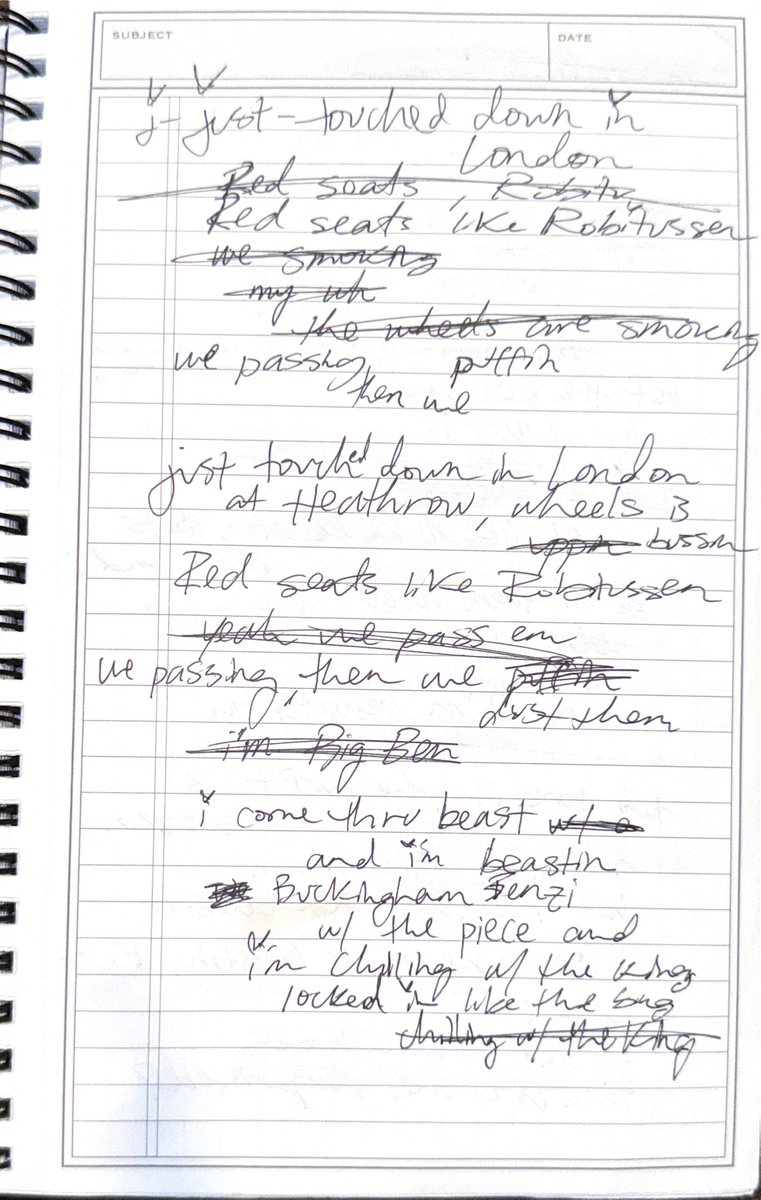 SUBJECT
DATE
j- just-touched down in
London
Red soats, Robitu
Red seats like Robitussen
we smoking
my wh
the wheels are smoking
we passing puffin
then we
just touched down in London
at Heathrow, wheels is
uppin bussin
Red seats like Robitussen
yeah we pass em
we passing, then we puffin
dust them
i'm Big Ben
i come thru beast w/ a
and i'm beastin
Buckingham Fenzi
w/ the piece and
i'm chilling w/ the King
locked in like the
chilling w/ the King